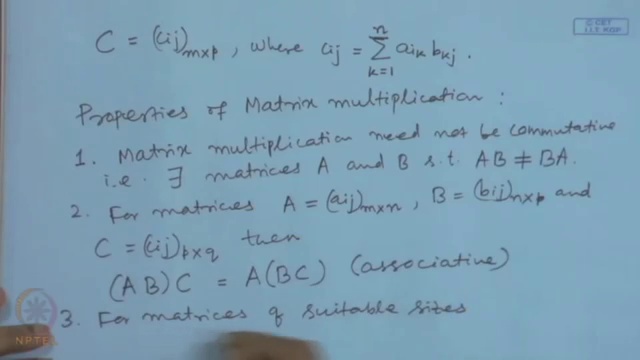 C = (cij)m×p, where cij = Σ k=1 n aik bkj.
© CET
I.I.T. KGP
Properties of Matrix multiplication:
1. Matrix multiplication need not be commutative
i.e. ∃ matrices A and B s.t. AB ≠ BA.
2. For matrices A = (aij)m×n, B = (bij)n×p and
C = (cij)p×q then
(AB)C = A(BC) (associative)
3. For matrices of suitable sizes
NPTEL